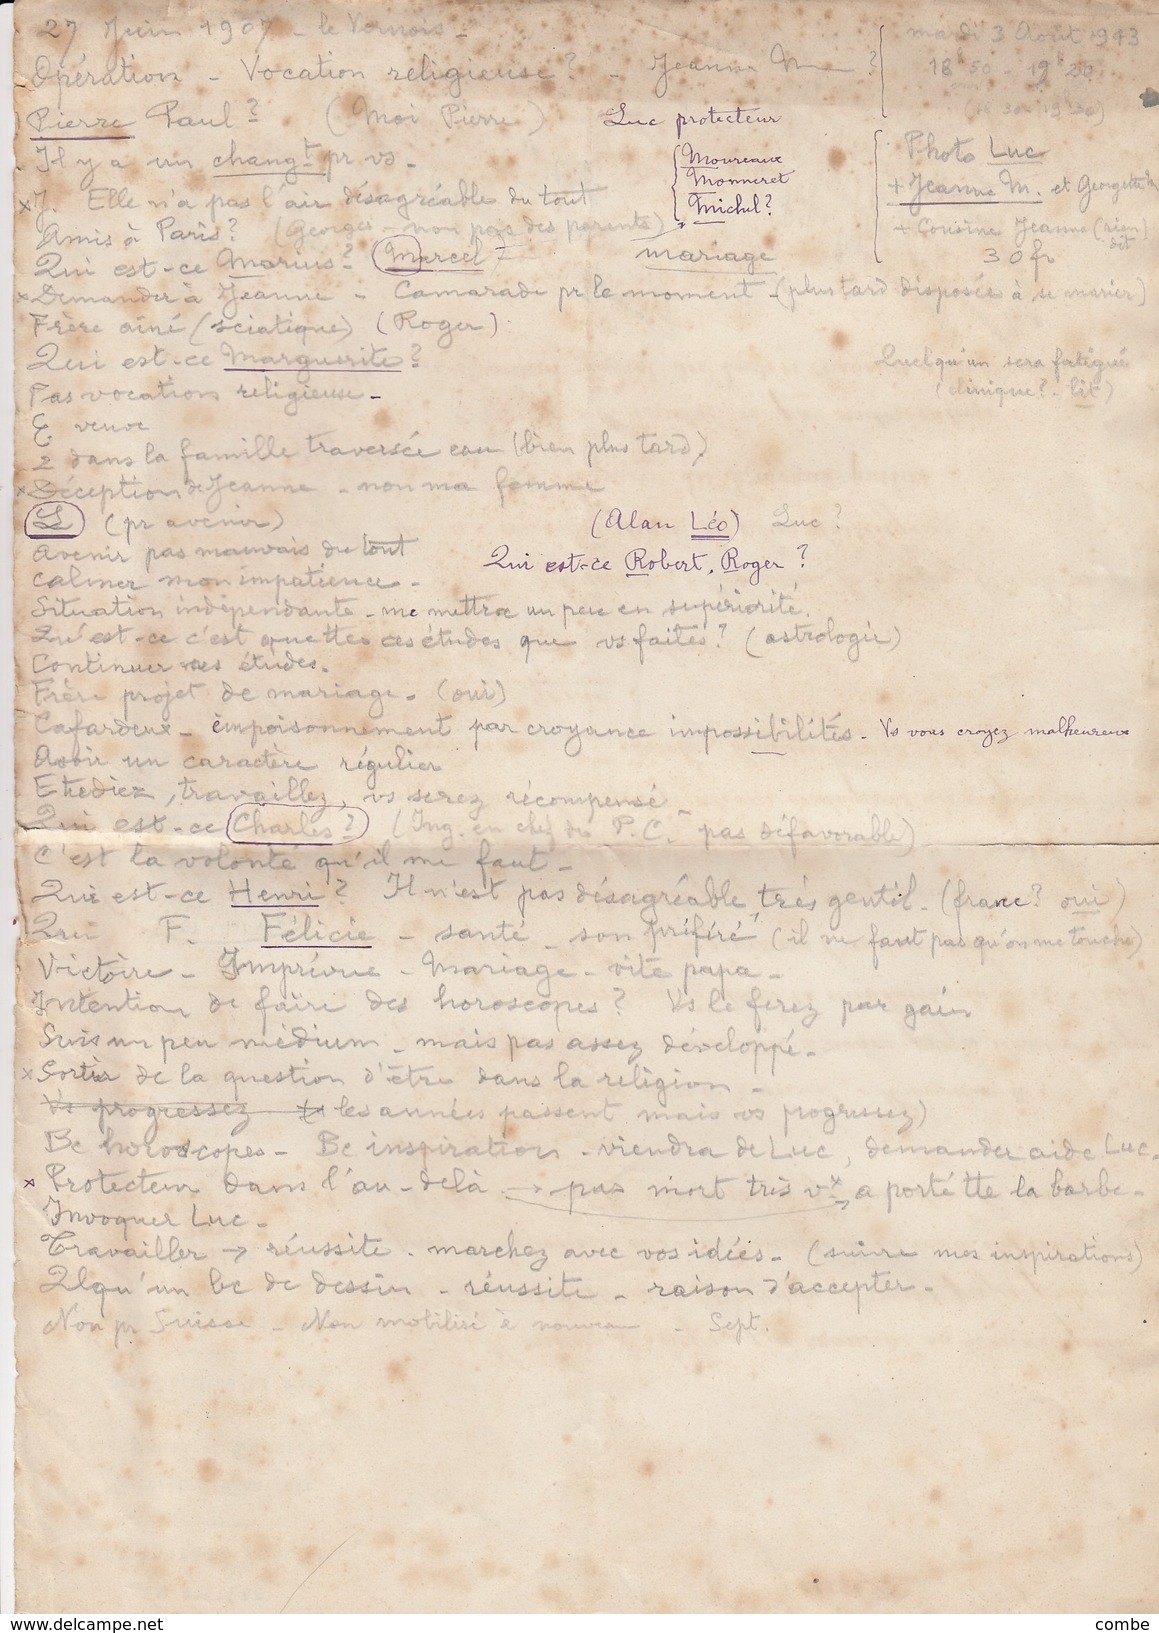 27 Juin 1907 - le Vernois -
mardi 3 Août 1943
Opération - Vocation religieuse ? - Jeanne M ?
18h50 - 19h30
Pierre Paul ? (Moi Pierre) Luc protecteur
Il y a un changt pr vs -
Moureaux
Monneret
Michel ?
Photo Luc
+ Jeanne M. et Georgette M
+ Cousine Jeanne (rien dit)
30 fr
x J. Elle n'a pas l'air désagréable du tout
Amis à Paris ? (Georges - non pas des parents)
Qui est-ce Marius ? Marcel
mariage
x Demander à Jeanne - Camarade pr le moment - (plus tard disposée à se marier)
Frère ainé (sciatique) (Roger)
Qui est-ce Marguerite ?
Quelqu'un sera fatigué
(clinique ? - lit)
Pas vocation religieuse -
veuve
2 dans la famille traversée eau (bien plus tard)
x Déception de Jeanne - non ma femme
L (pr avenir) (Alan Léo) Luc ?
Avenir pas mauvais du tout
Qui est-ce Robert, Roger ?
calmer mon impatience -
Situation indépendante - me mettra un peu en supériorité.
Qu'est-ce c'est que ttes ces études que vs faites ? (astrologie)
Continuer mes études.
Frère projet de mariage - (oui)
Cafardeux - empoisonnement par croyance impossibilités - Vs vous croyez malheureux
Avoir un caractère régulier
Etudiez, travaillez, vs serez récompensé -
Qui est-ce Charles ? (Ing. en chef du P.C. - pas défavorable)
C'est la volonté qu'il me faut -
Qui est-ce Henri ? Il n'est pas désagréable, très gentil - (franc ? oui)
Qui F. Félicie - santé - son préféré (il ne faut pas qu'on me touche)
Victoire - Imprévue - Mariage - vite papa -
Intention de faire des horoscopes ? Vs le ferez par gain
Suis un peu médium - mais pas assez développé -
x Sortir de la question d'être dans la religion -
Vs progressez les années passent mais vs progressez)
Bc horoscopes - Bc inspiration - viendra de Luc, demander aide Luc.
x Protecteur dans l'au-delà → pas mort très vx, a porté tte la barbe -
Invoquer Luc -
Travailler → réussite - marchez avec vos idées - (suivre mes inspirations)
Qlqu'un bc de dessin - réussite - raison d'accepter -
Non pr Suisse - Non mobilisé à nouveau - Sept.
delcampe.net
combe